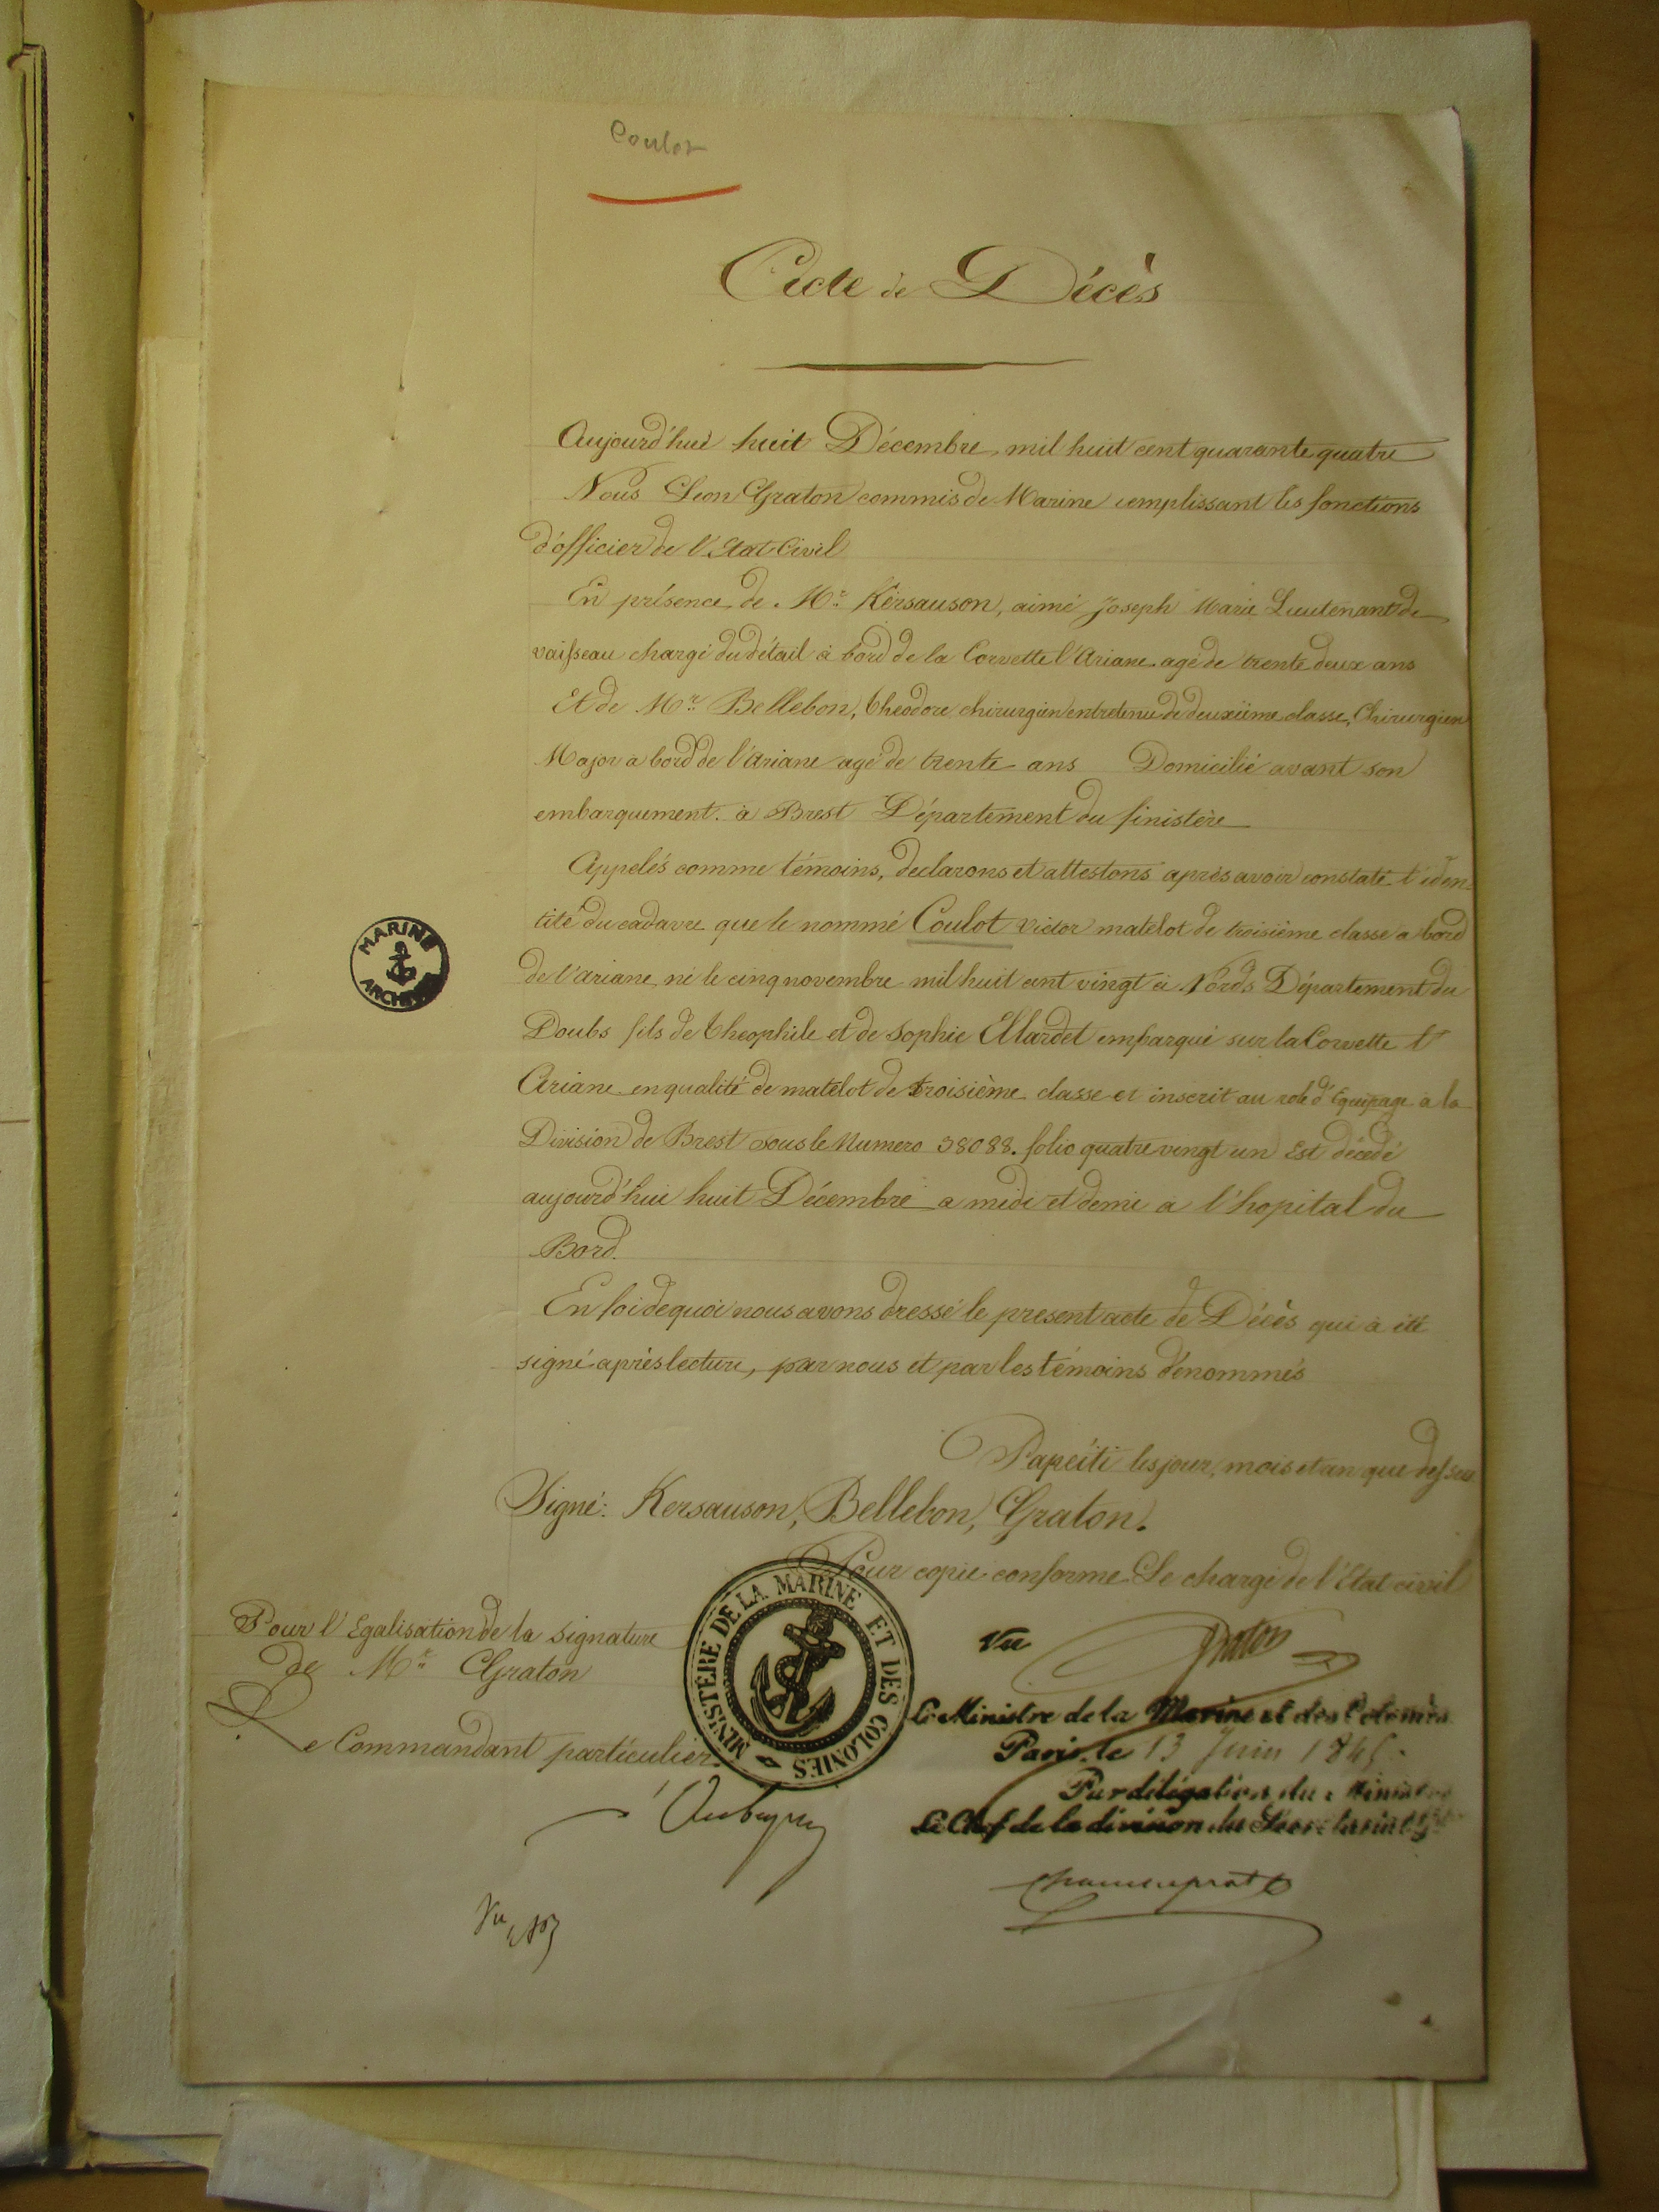 Coulot
Acte de Décès
Aujourd'hui huit Décembre, mil huit cent quarante quatre
Nous Leon Graton commis de Marine remplissant les fonctions
d'officier de l'Etat Civil
En présence de Mr. Kersauson, aimé Joseph Marie Lieutenant de
vaisseau chargé du détail à bord de la Corvette l'Ariane agé de trente deux ans
Et de Mr. Bellebon, Theodore chirurgien entretenu de deuxiime classe, Chirurgien
Major a bord de l'Ariane agé de trente ans Domicilié avant son
embarquement. à Brest Département du finistère
Appelés comme témoins, declarons et attestons après avoir constaté l'iden-
tité du cadavre que le nommé Coulot victor matelot de troisième classe a bord
de l'ariane, né le cinq novembre mil huit cent vingt à Nords Département du
Doubs fils de Theophile et de Sophie Allardet embarqué sur la Corvette l'
Ariane en qualité de matelot de troisième classe et inscrit au role d'Equipage a la
Division de Brest sous le Numero 38088. folio quatre vingt un Est décedé
aujourd'hui huit Décembre a midi et demi a l'hopital du
Bord.
En foi de quoi nous avons dressé le present acte de Décès qui à été
signé après lecture, par nous et par les témoins dénommés
Papéiti les jour, mois et an que dessus
Signé: Kersauson, Bellebon, Graton.
Pour copie conforme Le chargé de l'Etat civil
Graton
Pour l'Egalisation de la signature
de Mr. Graton
Le Commandant particulier
MARINE ARCHIVES
MINISTÈRE DE LA MARINE ET DES COLONIES
Vu
Le Ministre de la Marine et des Colonies
Paris, le 13 Juin 1845.
Par délégation du Ministre
Le Chef de la division du Secrétariat Gal
Vu